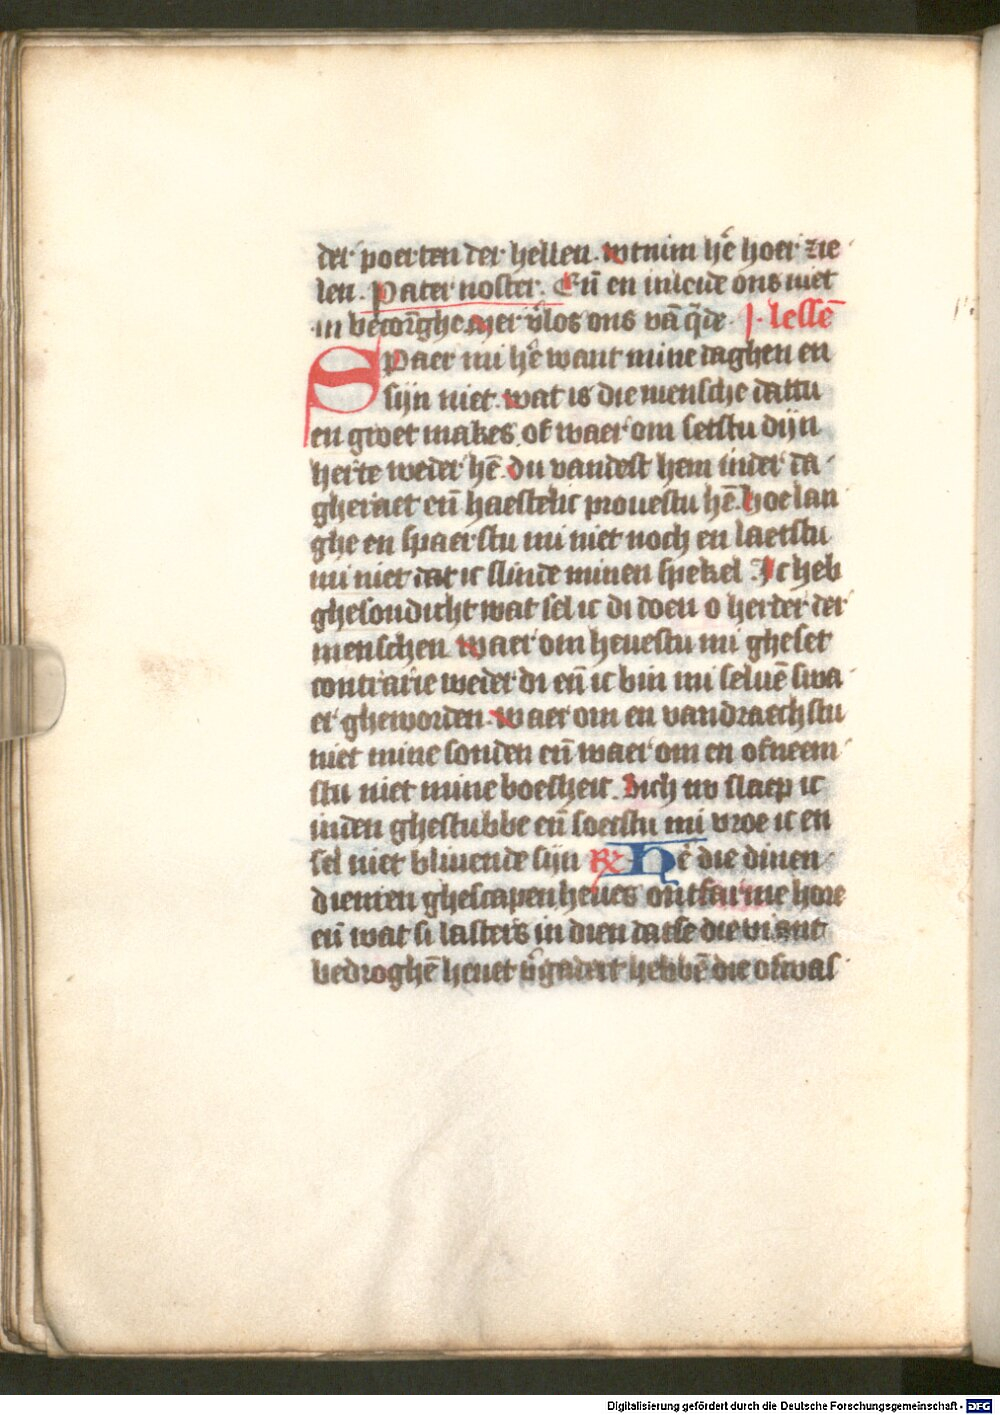 der poerten der hellen. wtnim hē hoer zie
len. Pater noster. Eñ en inleide ons niet
in becorīghe. mer v̓los ons vā q̄de. j. lessē
Spaer mi hē want mine daghen en
sijn niet. wat is die mensche dattu
en groet makes. of waer om setstu dijn
herte weder hē. du vandest hem inder da
gheraet eñ haestelic prouestu hē. hoe lan
ghe en spaerstu mi niet noch en laetstu
mi niet dat ic slinde minen spekel. Ic heb
ghesondicht wat sel ic di doen o herder der
menschen. waer om heuestu mi gheset
contrarie weder di eñ ic bin mi seluē swa
er gheworden. waer om en vandraechstu
niet mine sonden eñ waer om en ofneem
stu niet mine boesheit. Sich nv slaep ic
inden ghestubbe eñ soecstu mi vroe ic en
sel niet bliuende sijn R̷ Hē die dinen
dienten ghescapen heues ontfarme hore
eñ wat si lasters in dien datse die viant
bedroghē heuet v̓gadert hebbē die ofwas
Digitalisierung gefördert durch die Deutsche Forschungsgemeinschaft - DFG